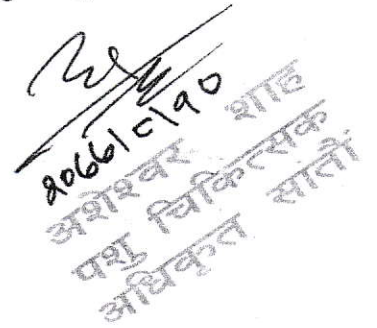 २०६६|८|१०
अशेश्वर शाह
पशु चिकित्सक
अधिकृत सातौं